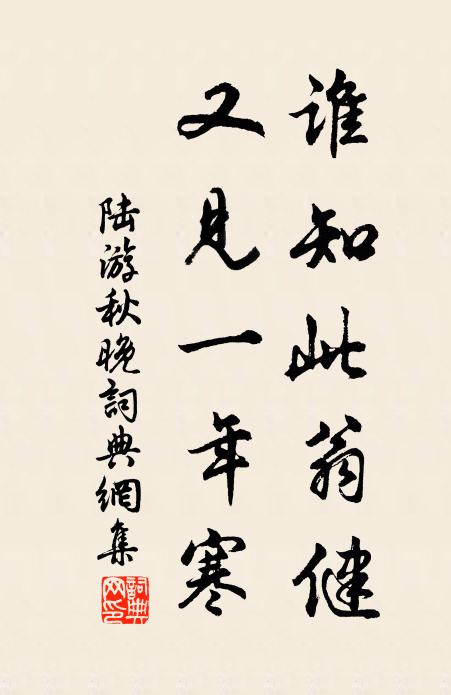 谁知此翁健
又见一年寒
陆游秋晚詞典網集
詞典网印